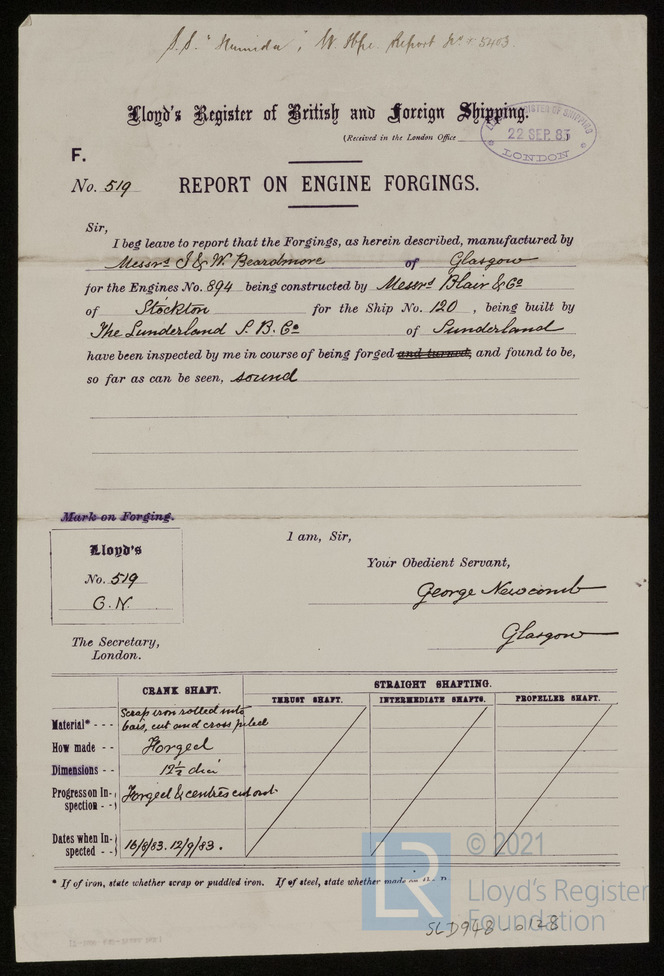 S.S. "Numida", W. Hpl. Report No. 5403.
Lloyd's Register of British and Foreign Shipping.
(Received in the London Office
LLOYD'S REGISTER OF SHIPPING
22 SEP. 83
LONDON
F.
No. 519 REPORT ON ENGINE FORGINGS.
Sir,
I beg leave to report that the Forgings, as herein described, manufactured by
Messrs I & W. Beardmore of Glasgow
for the Engines No. 894 being constructed by Messrs Blair & Co
of Stockton for the Ship No. 120, being built by
The Sunderland S. B. Co of Sunderland
have been inspected by me in course of being forged and turned, and found to be,
so far as can be seen, sound
Mark on Forging.
Lloyd's
No. 519
G.N.
I am, Sir,
Your Obedient Servant,
George Newcomb
Glasgow
The Secretary,
London.
CRANK SHAFT. STRAIGHT SHAFTING.
THRUST SHAFT. INTERMEDIATE SHAFTS. PROPELLER SHAFT.
Material* - - - Scrap iron rolled into
bars, cut and cross piled
How made - - Forged
Dimensions - - 12½ dia
Progress on In-
spection - - Forged & centres cut out
Dates when In-
spected - - 16/8/83. 12/9/83.
* If of iron, state whether scrap or puddled iron. If of steel, state whether made
LR
© 2021
Lloyd's Register
Foundation
SLD948-0128